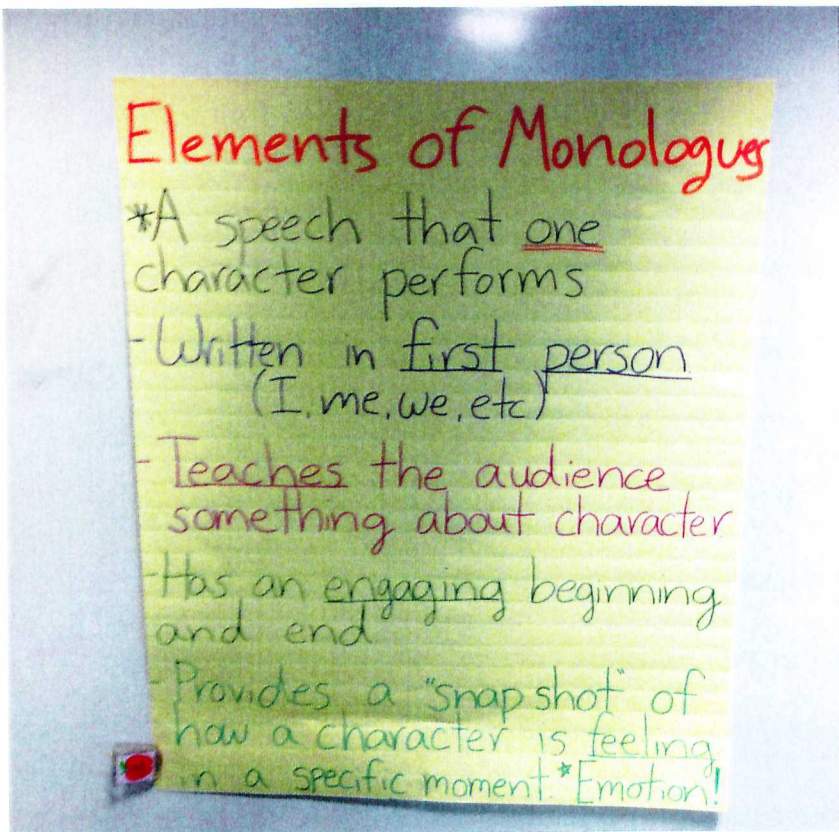 Elements of Monologues
*A speech that one
character performs
- Written in first person
(I, me, we, etc)
- Teaches the audience
something about character
- Has an engaging beginning
and end
- Provides a "snap shot" of
how a character is feeling
in a specific moment. *Emotion!